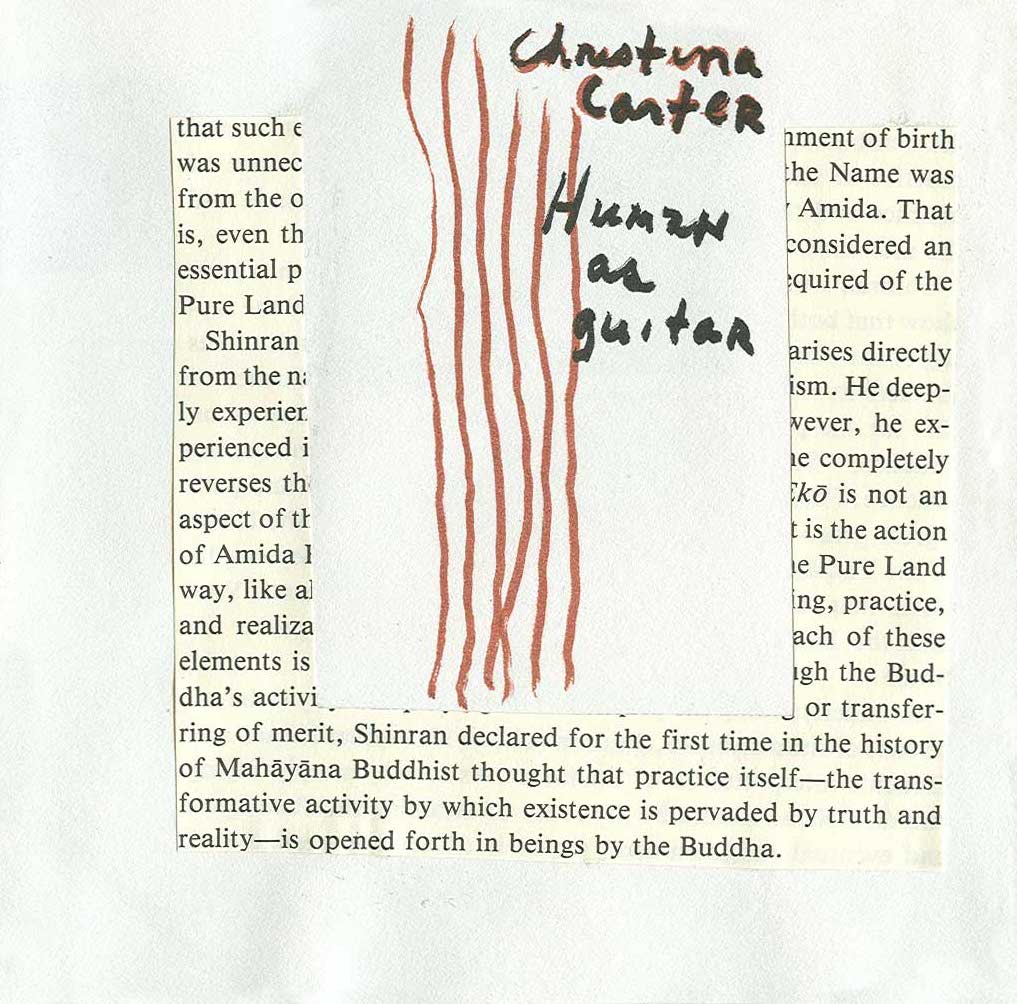 Christina
Carter
Human
as
guitar
that such e nment of birth
was unnec the Name was
from the o Amida. That
is, even th considered an
essential p equired of the
Pure Land
Shinran arises directly
from the na ism. He deep-
ly experien wever, he ex-
perienced i ne completely
reverses th Ekō is not an
aspect of th t is the action
of Amida ne Pure Land
way, like al ing, practice,
and realiza ach of these
elements is ugh the Bud-
dha's activi or transfer-
ring of merit, Shinran declared for the first time in the history
of Mahāyāna Buddhist thought that practice itself—the trans-
formative activity by which existence is pervaded by truth and
reality—is opened forth in beings by the Buddha.